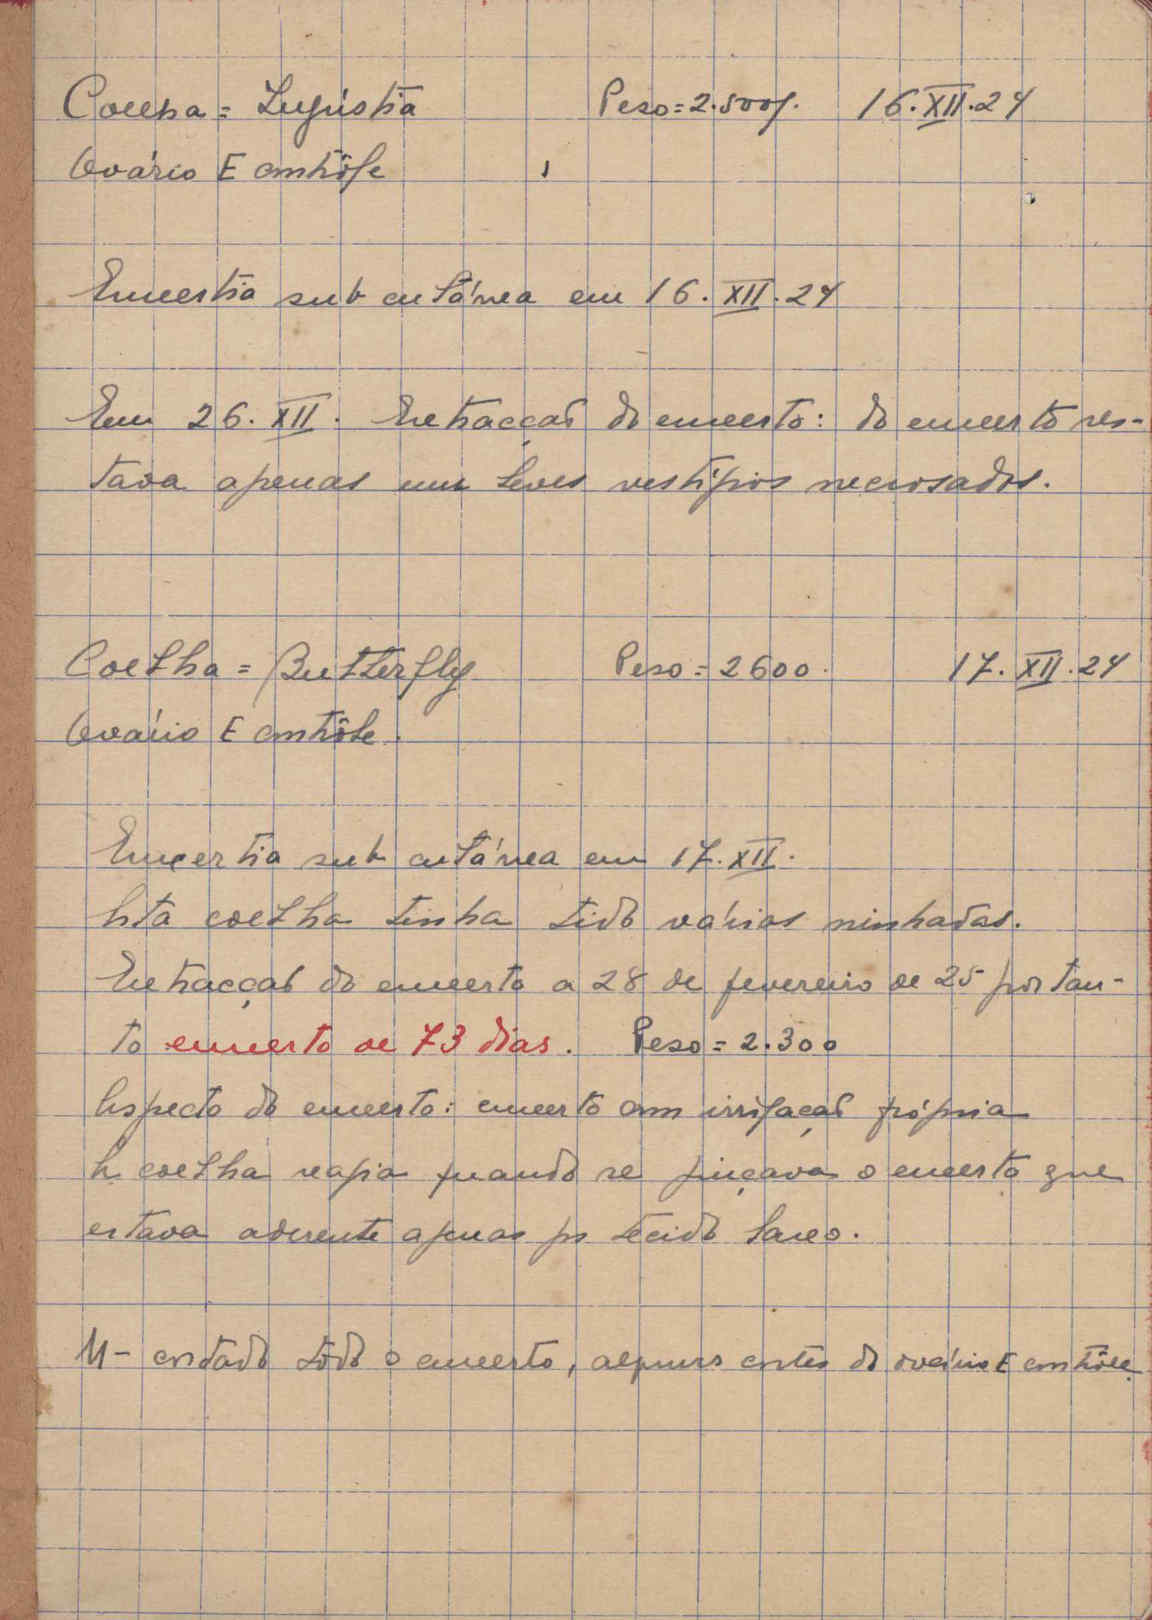 Coelha = Lugústia Peso = 2.500g. 16.XII.24
Ovário E contrôle
Enxertia sub cutânea em 16.XII.24
Em 26.XII. Extracção do enxerto: do enxerto res-
tava apenas uns leves vestígios necrosados.
Coelha = Butterfly Peso = 2600. 17.XII.24
Ovário E contrôle.
Enxertia sub cutánea em 17.XII.
Esta coelha tinha tido várias ninhadas.
Extracção do enxerto a 28 de fevereiro de 25 portan-
to enxerto de 73 dias. Peso = 2.300
Aspecto do enxerto: enxerto com irrigação própria
A coelha reagia quando se pinçava o enxerto que
estava aderente apenas por tecido laxo.
M - cortado todo o enxerto, alguns cortes do ovário E contrôle.